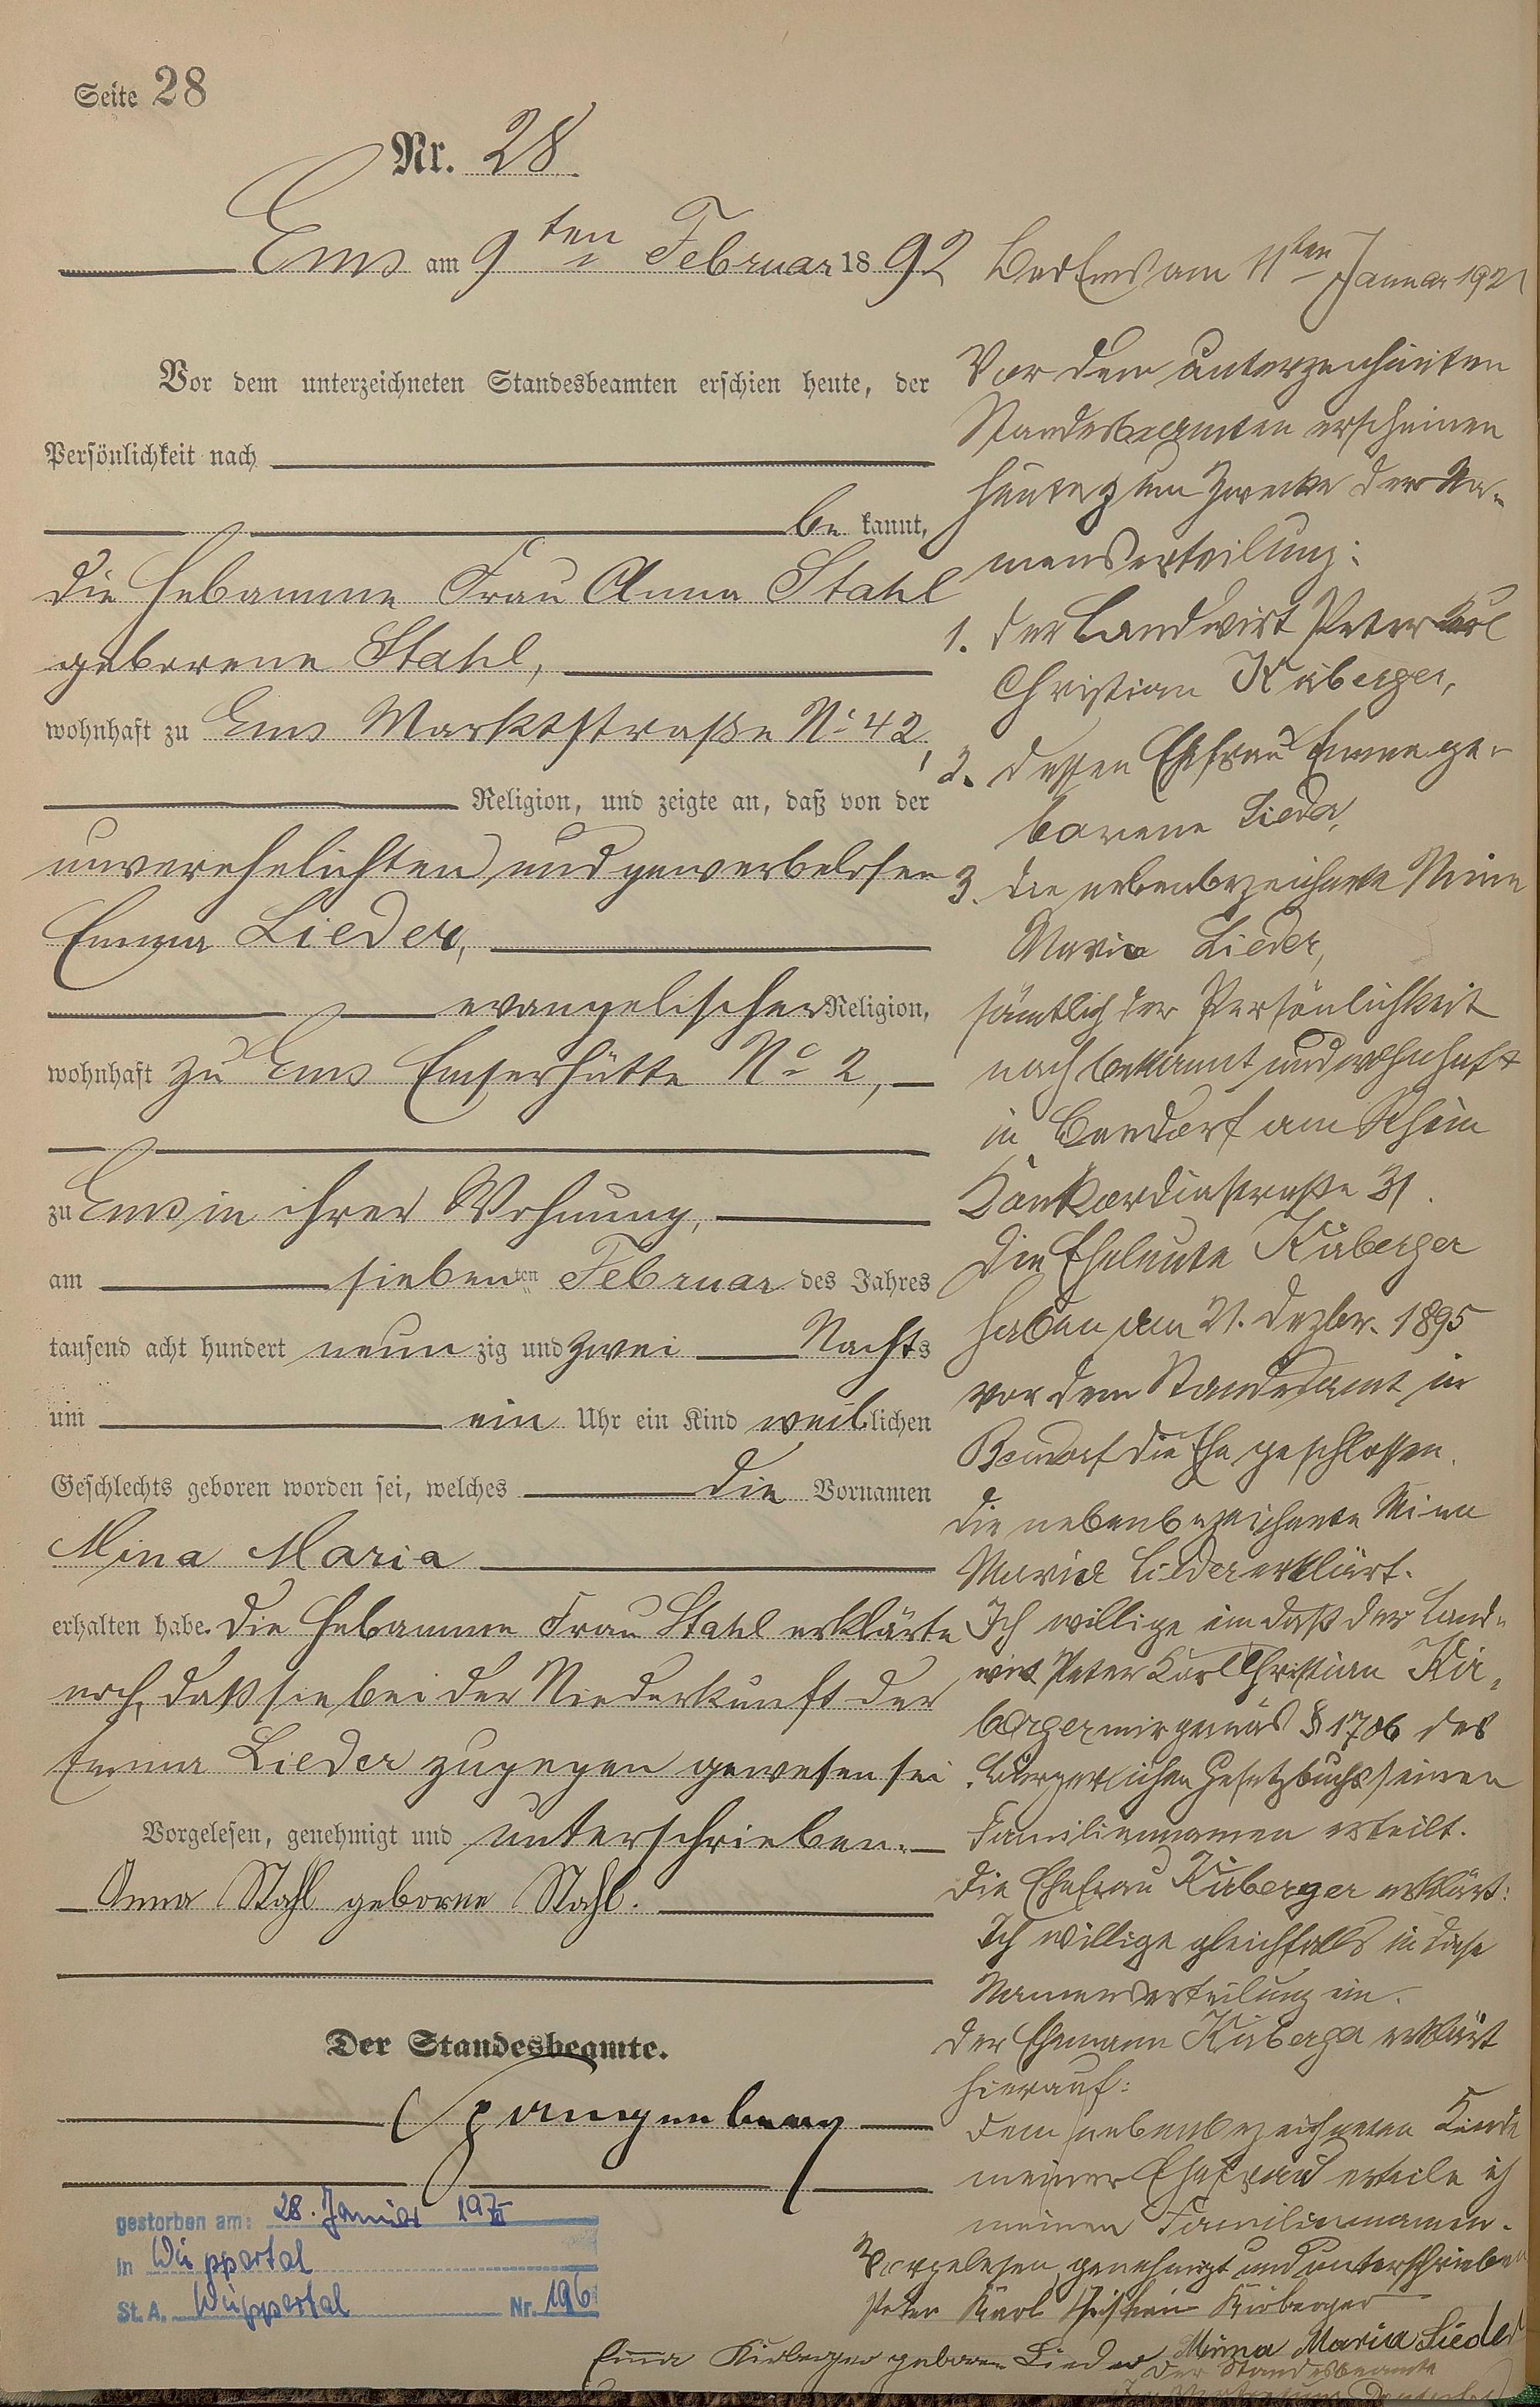 Seite 28
Nr. 28
Ems am 9ten Februar 1892
Vor dem unterzeichneten Standesbeamten erschien heute, der
Persönlichkeit nach
be kannt,
die Hebamme Frau Anna Stahl
geborene Stahl,
wohnhaft zu Ems Marktstraße No 42,
Religion, und zeigte an, daß von der
unverehelichten und gewerbelosen
Emma Lieder,
evangelischer Religion,
wohnhaft zu Ems Emserhütte No 2,
zu Ems in ihrer Wohnung,
am siebenten Februar des Jahres
tausend acht hundert neunzig und zwei Nachts
um ein Uhr ein Kind weiblichen
Geschlechts geboren worden sei, welches die Vornamen
Mina Maria
erhalten habe. Die Hebamme Frau Stahl erklärte
noch, daß sie bei der Niederkunft der
Emma Lieder zugegen gewesen sei
Vorgelesen, genehmigt und unterschrieben.
Anna Stahl geborne Stahl.
Der Standesbeamte.
Spangenberg
gestorben am: 28. Januar
in Wuppertal
St. A. Wuppertal Nr. 196
Bad Ems am 11ten Januar 1921
Vor dem unterzeichneten
Standesbeamten erscheinen
heute zum Zwecke der Na-
menserteilung:
1. der Landwirt Peter Karl
Christian Kirberger,
2. dessen Ehefrau Emma ge-
borene Lieder,
3. die nebenbezeichnete Mina
Maria Lieder,
sämtlich der Persönlichkeit
nach bekannt und wohnhaft
in Bendorf am Rhein
Konkordiastraße 31.
Die Eheleute Kirberger
haben am 21. Dezbr. 1895
vor dem Standesamt in
Bendorf die Ehe geschlossen.
Die nebenbezeichnete Mina
Maria Lieder erklärt.
Ich willige ein daß der Land-
wirt Peter Karl Christian Kir-
berger mir gemäs § 1706 des
Bürgerlichen Gesetzbuchs seinen
Familiennamen erteilt.
Die Ehefrau Kirberger erklärt:
Ich willige gleichfalls in diese
Namenserteilung ein.
Der Ehemann Kirberger erklärt
hierauf:
Dem nebenbezeichneten Kinde
meiner Ehefrau erteile ich
meinen Familiennamen.
Vorgelesen, genehmigt und unterschrieben
Peter Karl Christian Kirberger
Emma Kirberger geboren Lieder Minna Maria Lieder
Der Standesbeamte